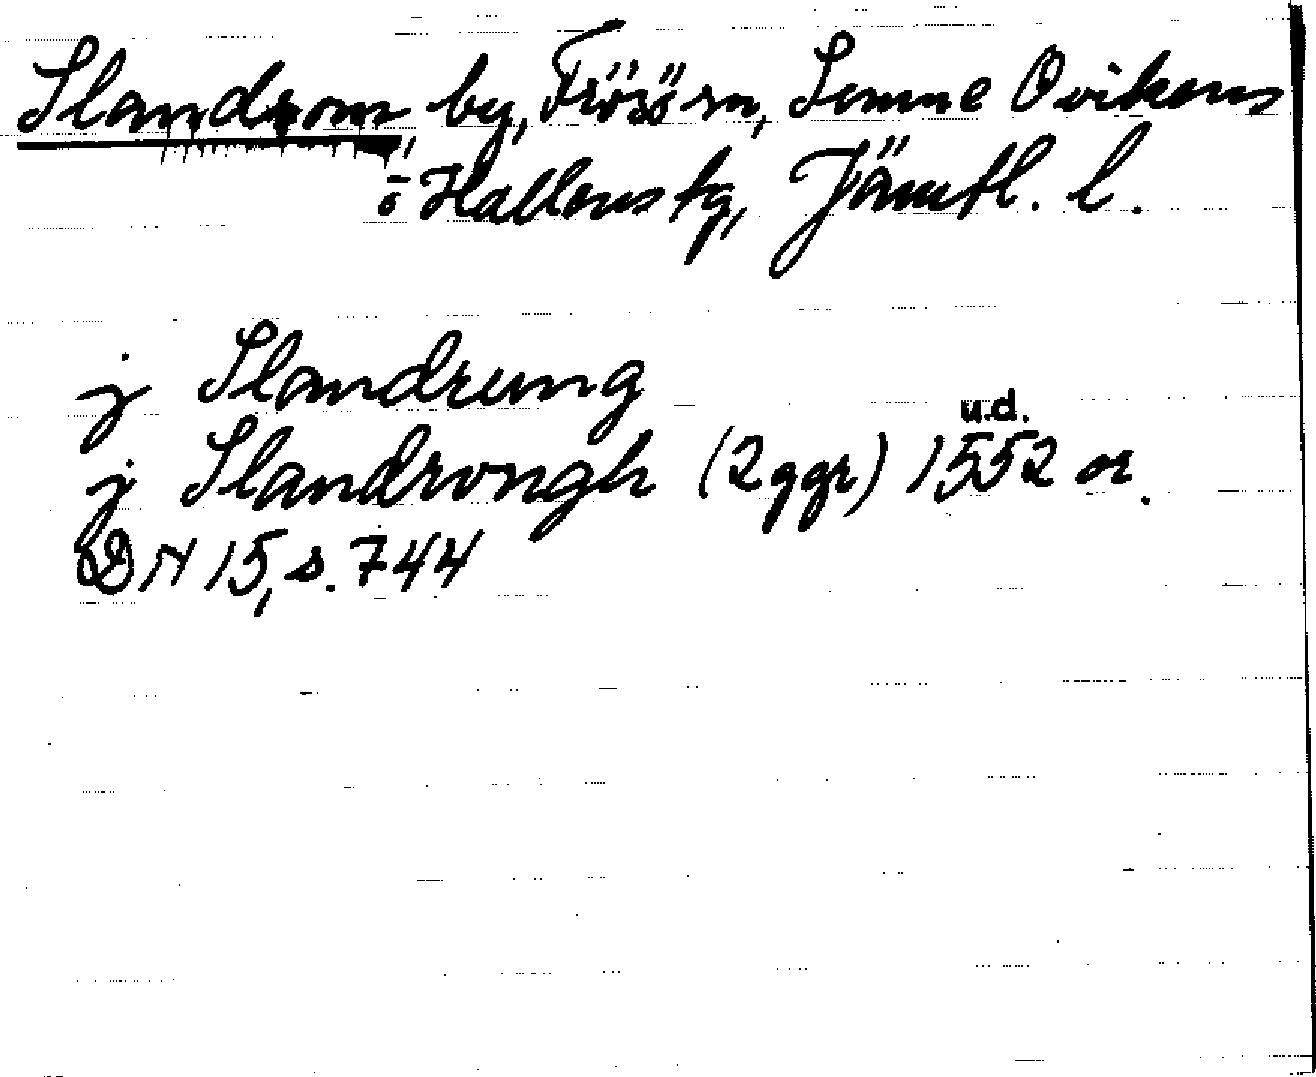 Slandrom, by, Frösö sn, Sunne Ovikens
o Hallens tg, Jämtl. l.
j Slandrung
u.d.
j Slandrongh (2 ggr) 1552 or.
DN 15, s. 744